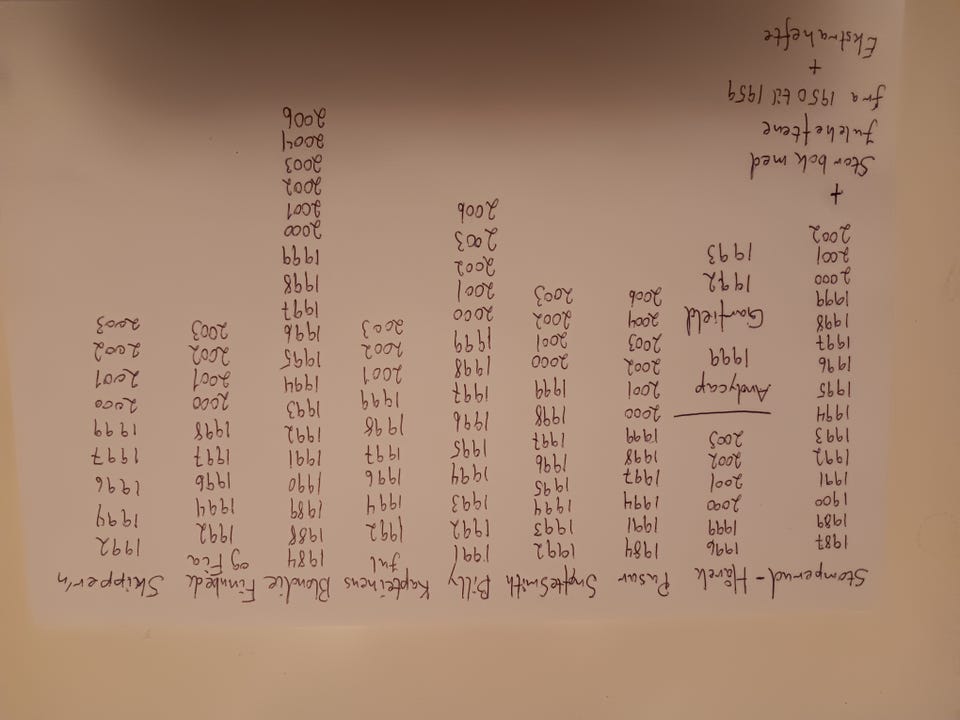 Stomperud -
1987
1989
1900
1991
1992
1993
1994
1995
1996
1997
1998
1999
2000
2001
2002
+
Stor bok med
Juleheftene
fra 1950 til 1959
+
Ekstrahefte
Hårek
1996
1999
2000
2001
2002
2003
Andycap
1999
Garfield
1992
1993
Pusur
1984
1991
1994
1997
1998
1999
2000
2001
2002
2003
2004
2006
SnuffeSmith
1992
1993
1994
1995
1996
1997
1998
1999
2000
2001
2002
2003
Billy
1991
1992
1993
1994
1995
1996
1997
1998
1999
2000
2001
2002
2003
2006
Kapteinens
Jul
1992
1994
1996
1997
1998
1999
2001
2002
2003
Blondie
1984
1988
1989
1990
1991
1992
1993
1994
1995
1996
1997
1998
1999
2000
2001
2002
2003
2004
2006
Finnbeck
og Fia
1992
1994
1996
1997
1998
2000
2001
2002
2003
Skipper'n
1992
1994
1996
1997
1999
2000
2001
2002
2003